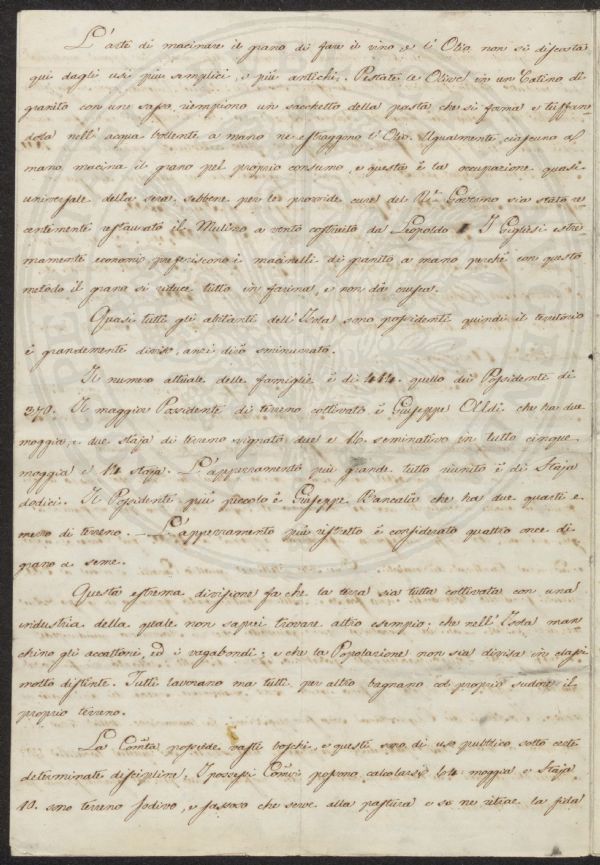 L'arte di macinare il grano di fare il vino e l'Olio non si discosta
qui dagli usi più semplici, e più antichi. Pestate le Olive in un Catino di
granito con un sasso, riempiono un sacchetto della pasta che si forma e tuffan-
dola nell'acqua bollente a mano ne estraggono l'Olio. Ugualmente ciascuno a
mano macina il grano pel proprio consumo, e questa è la occupazione quasi
universale della sera, sebbene per le provvide cure del R. Governo sia stato re
centemente restaurato il Mulino a vento costruito da Leopoldo I. I Gigliesi estre-
mamente economi preferiscono i macinelli di granito a mano perchè con questo
metodo il grano si riduce tutto in farina, e non dà crusca.
Quasi tutti gli abitanti dell'Isola sono possidenti quindi il territorio
è grandemente diviso, anzi dirò sminuzzato.
Il numero attuale delle famiglie è di 414. quello dei Possidenti di
370. Il maggior Possidente di terreno coltivato è Giuseppe Aldi che ha due
moggia, e due staja di terreno vignato due e 16. seminativo in tutto cinque
moggia e 14 staja. L'appezzamento più grande tutto riunito è di Staja
dodici. Il Possidente più piccolo è Giuseppe Bancalà che ha due quarti e
mezzo di terreno. — L'appezzamento più ristretto è considerato quattro once di
grano a seme.
Questa estrema divisione fa che la terra sia tutta coltivata con una
industria della quale non saprei trovare altro esempio: che nell'Isola man
chino gli accattoni, ed i vagabondi; e che la Popolazione non sia divisa in classi
molto distinte. Tutti lavorano ma tutti per altro bagnano col proprio sudore il
proprio terreno.
La Com.tà possiede vasti boschi, e questi sono di uso pubblico sotto certe
determinate discipline. I possessi Com.vi possono calcolarsi 64 moggia e Staja
10. sono terreno sodivo, e sassoso che serve alla pastura e se ne ritrae la fida